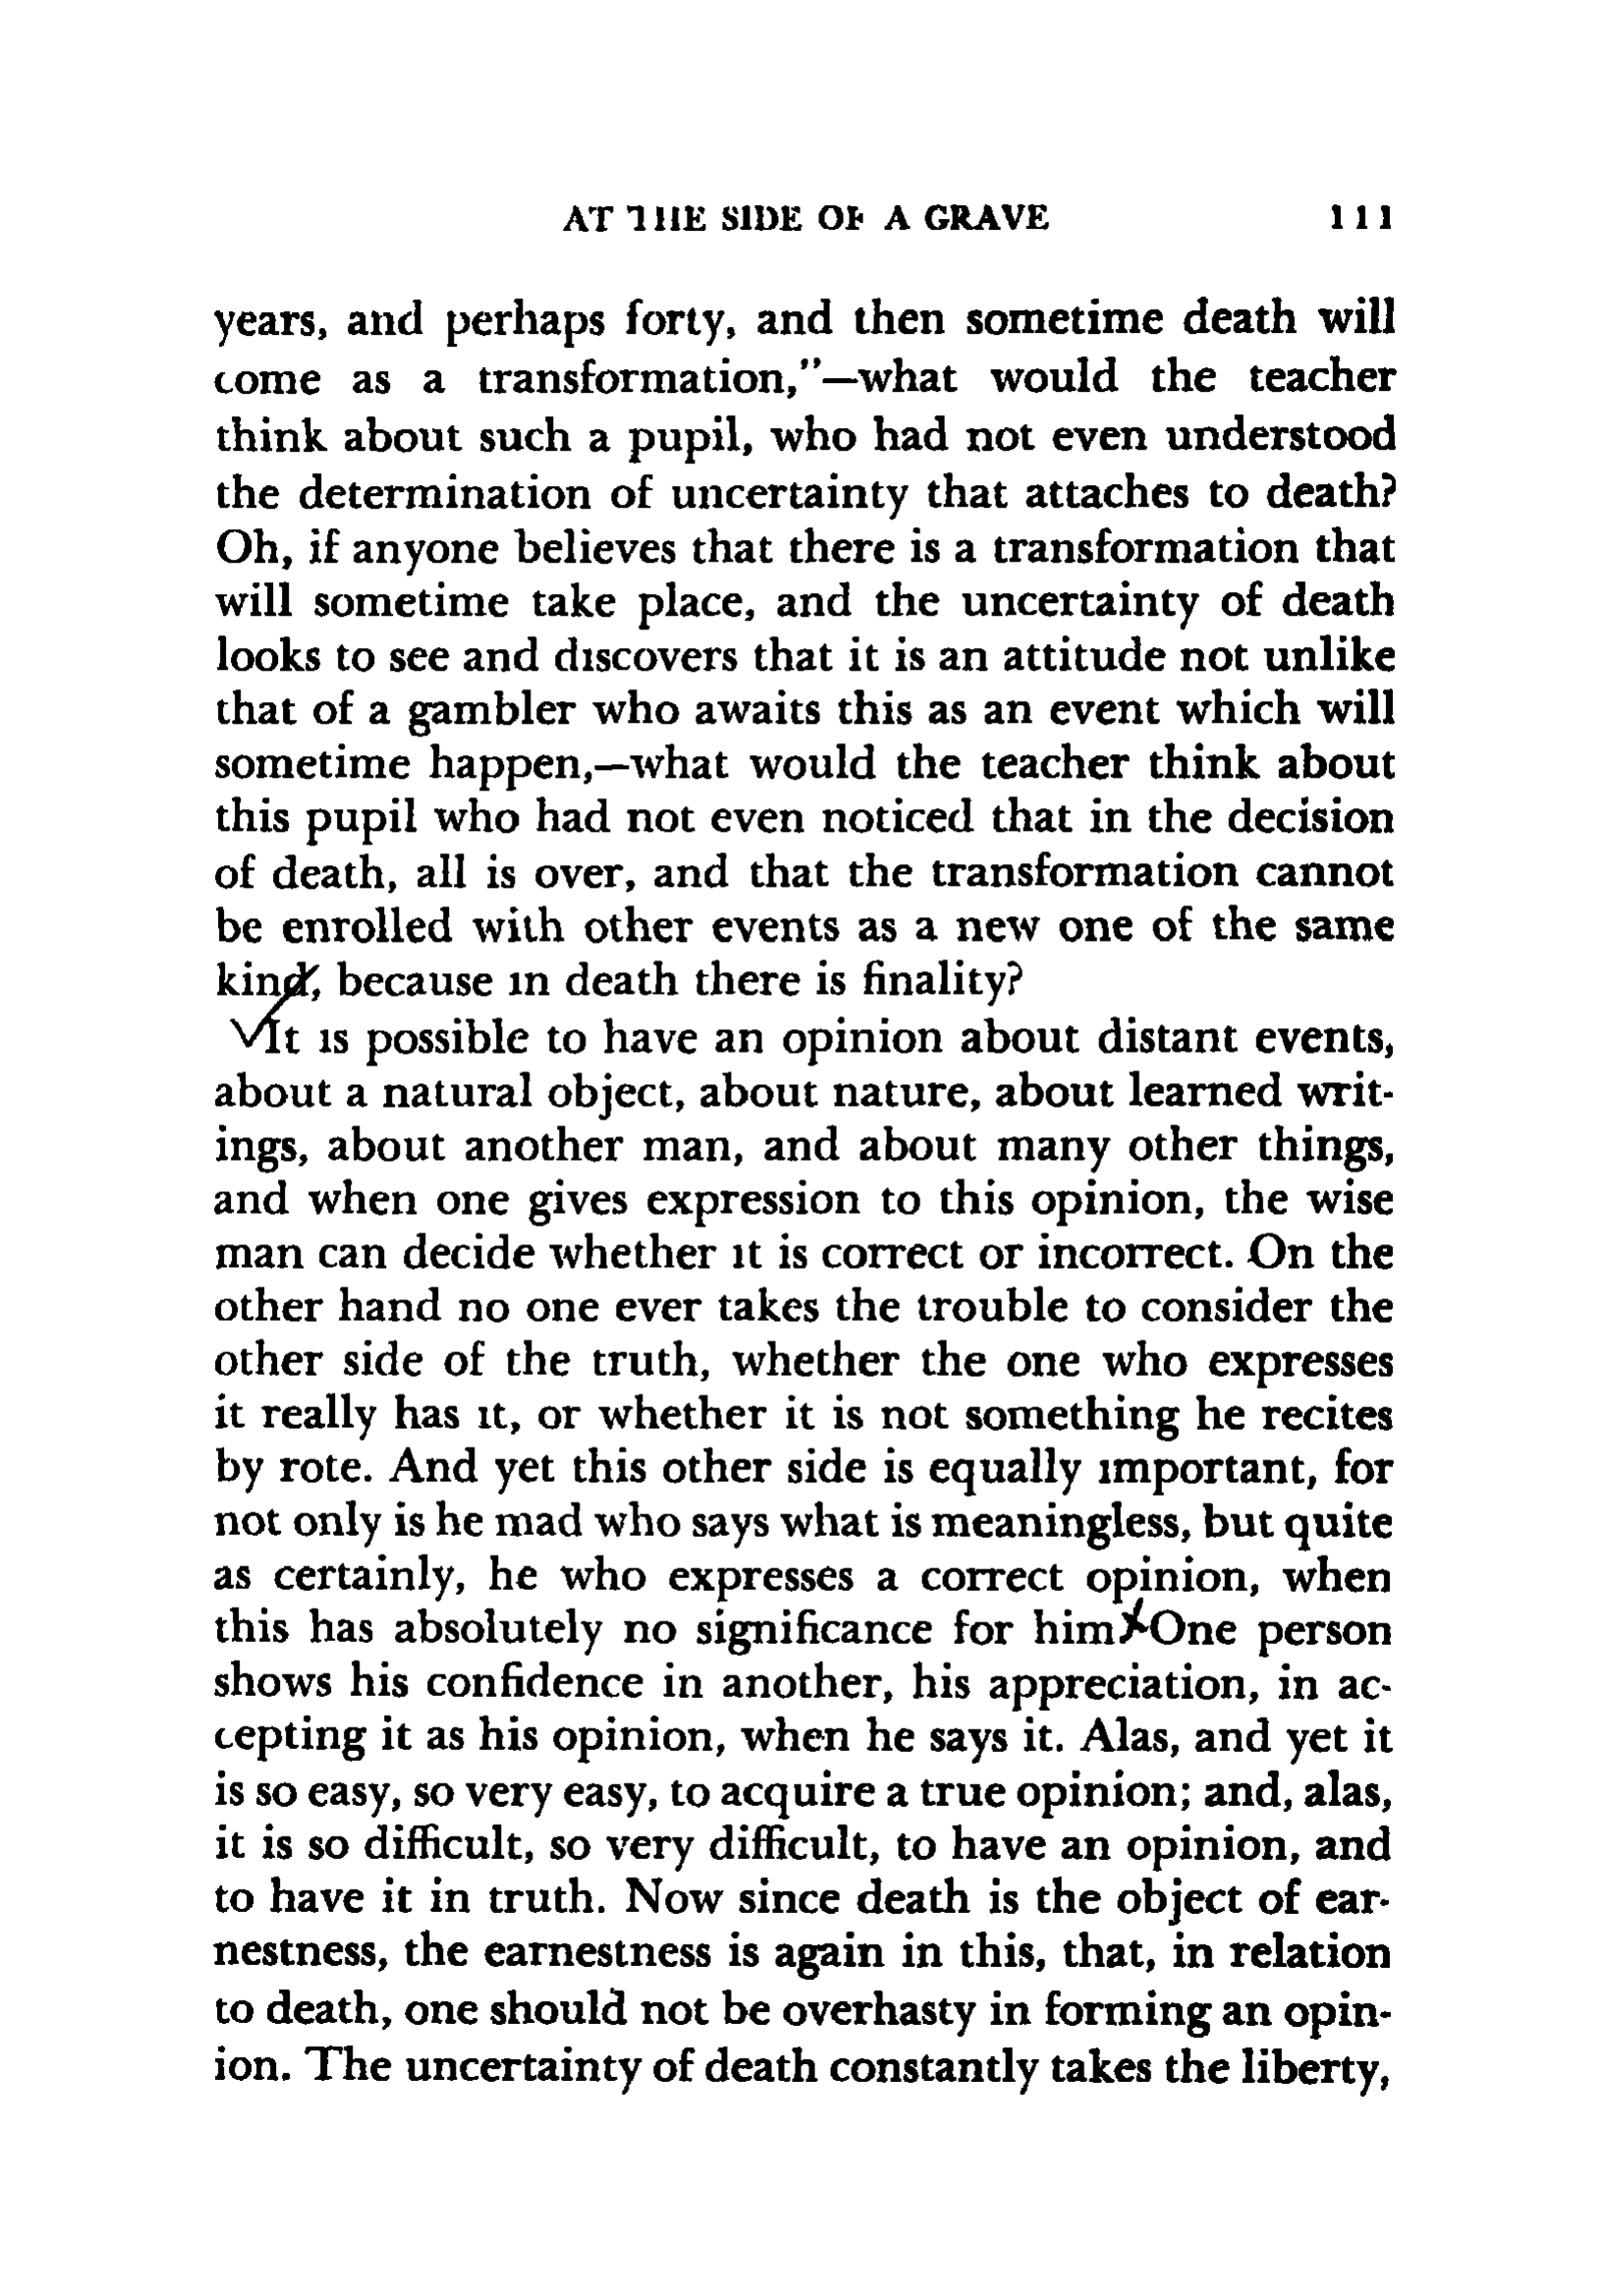 AT THE SIDE OF A GRAVE 111
years, and perhaps forty, and then sometime death will
come as a transformation,"—what would the teacher
think about such a pupil, who had not even understood
the determination of uncertainty that attaches to death?
Oh, if anyone believes that there is a transformation that
will sometime take place, and the uncertainty of death
looks to see and discovers that it is an attitude not unlike
that of a gambler who awaits this as an event which will
sometime happen,—what would the teacher think about
this pupil who had not even noticed that in the decision
of death, all is over, and that the transformation cannot
be enrolled with other events as a new one of the same
kind, because in death there is finality?
It is possible to have an opinion about distant events,
about a natural object, about nature, about learned writ-
ings, about another man, and about many other things,
and when one gives expression to this opinion, the wise
man can decide whether it is correct or incorrect. On the
other hand no one ever takes the trouble to consider the
other side of the truth, whether the one who expresses
it really has it, or whether it is not something he recites
by rote. And yet this other side is equally important, for
not only is he mad who says what is meaningless, but quite
as certainly, he who expresses a correct opinion, when
this has absolutely no significance for him. One person
shows his confidence in another, his appreciation, in ac-
cepting it as his opinion, when he says it. Alas, and yet it
is so easy, so very easy, to acquire a true opinion; and, alas,
it is so difficult, so very difficult, to have an opinion, and
to have it in truth. Now since death is the object of ear-
nestness, the earnestness is again in this, that, in relation
to death, one should not be overhasty in forming an opin-
ion. The uncertainty of death constantly takes the liberty,